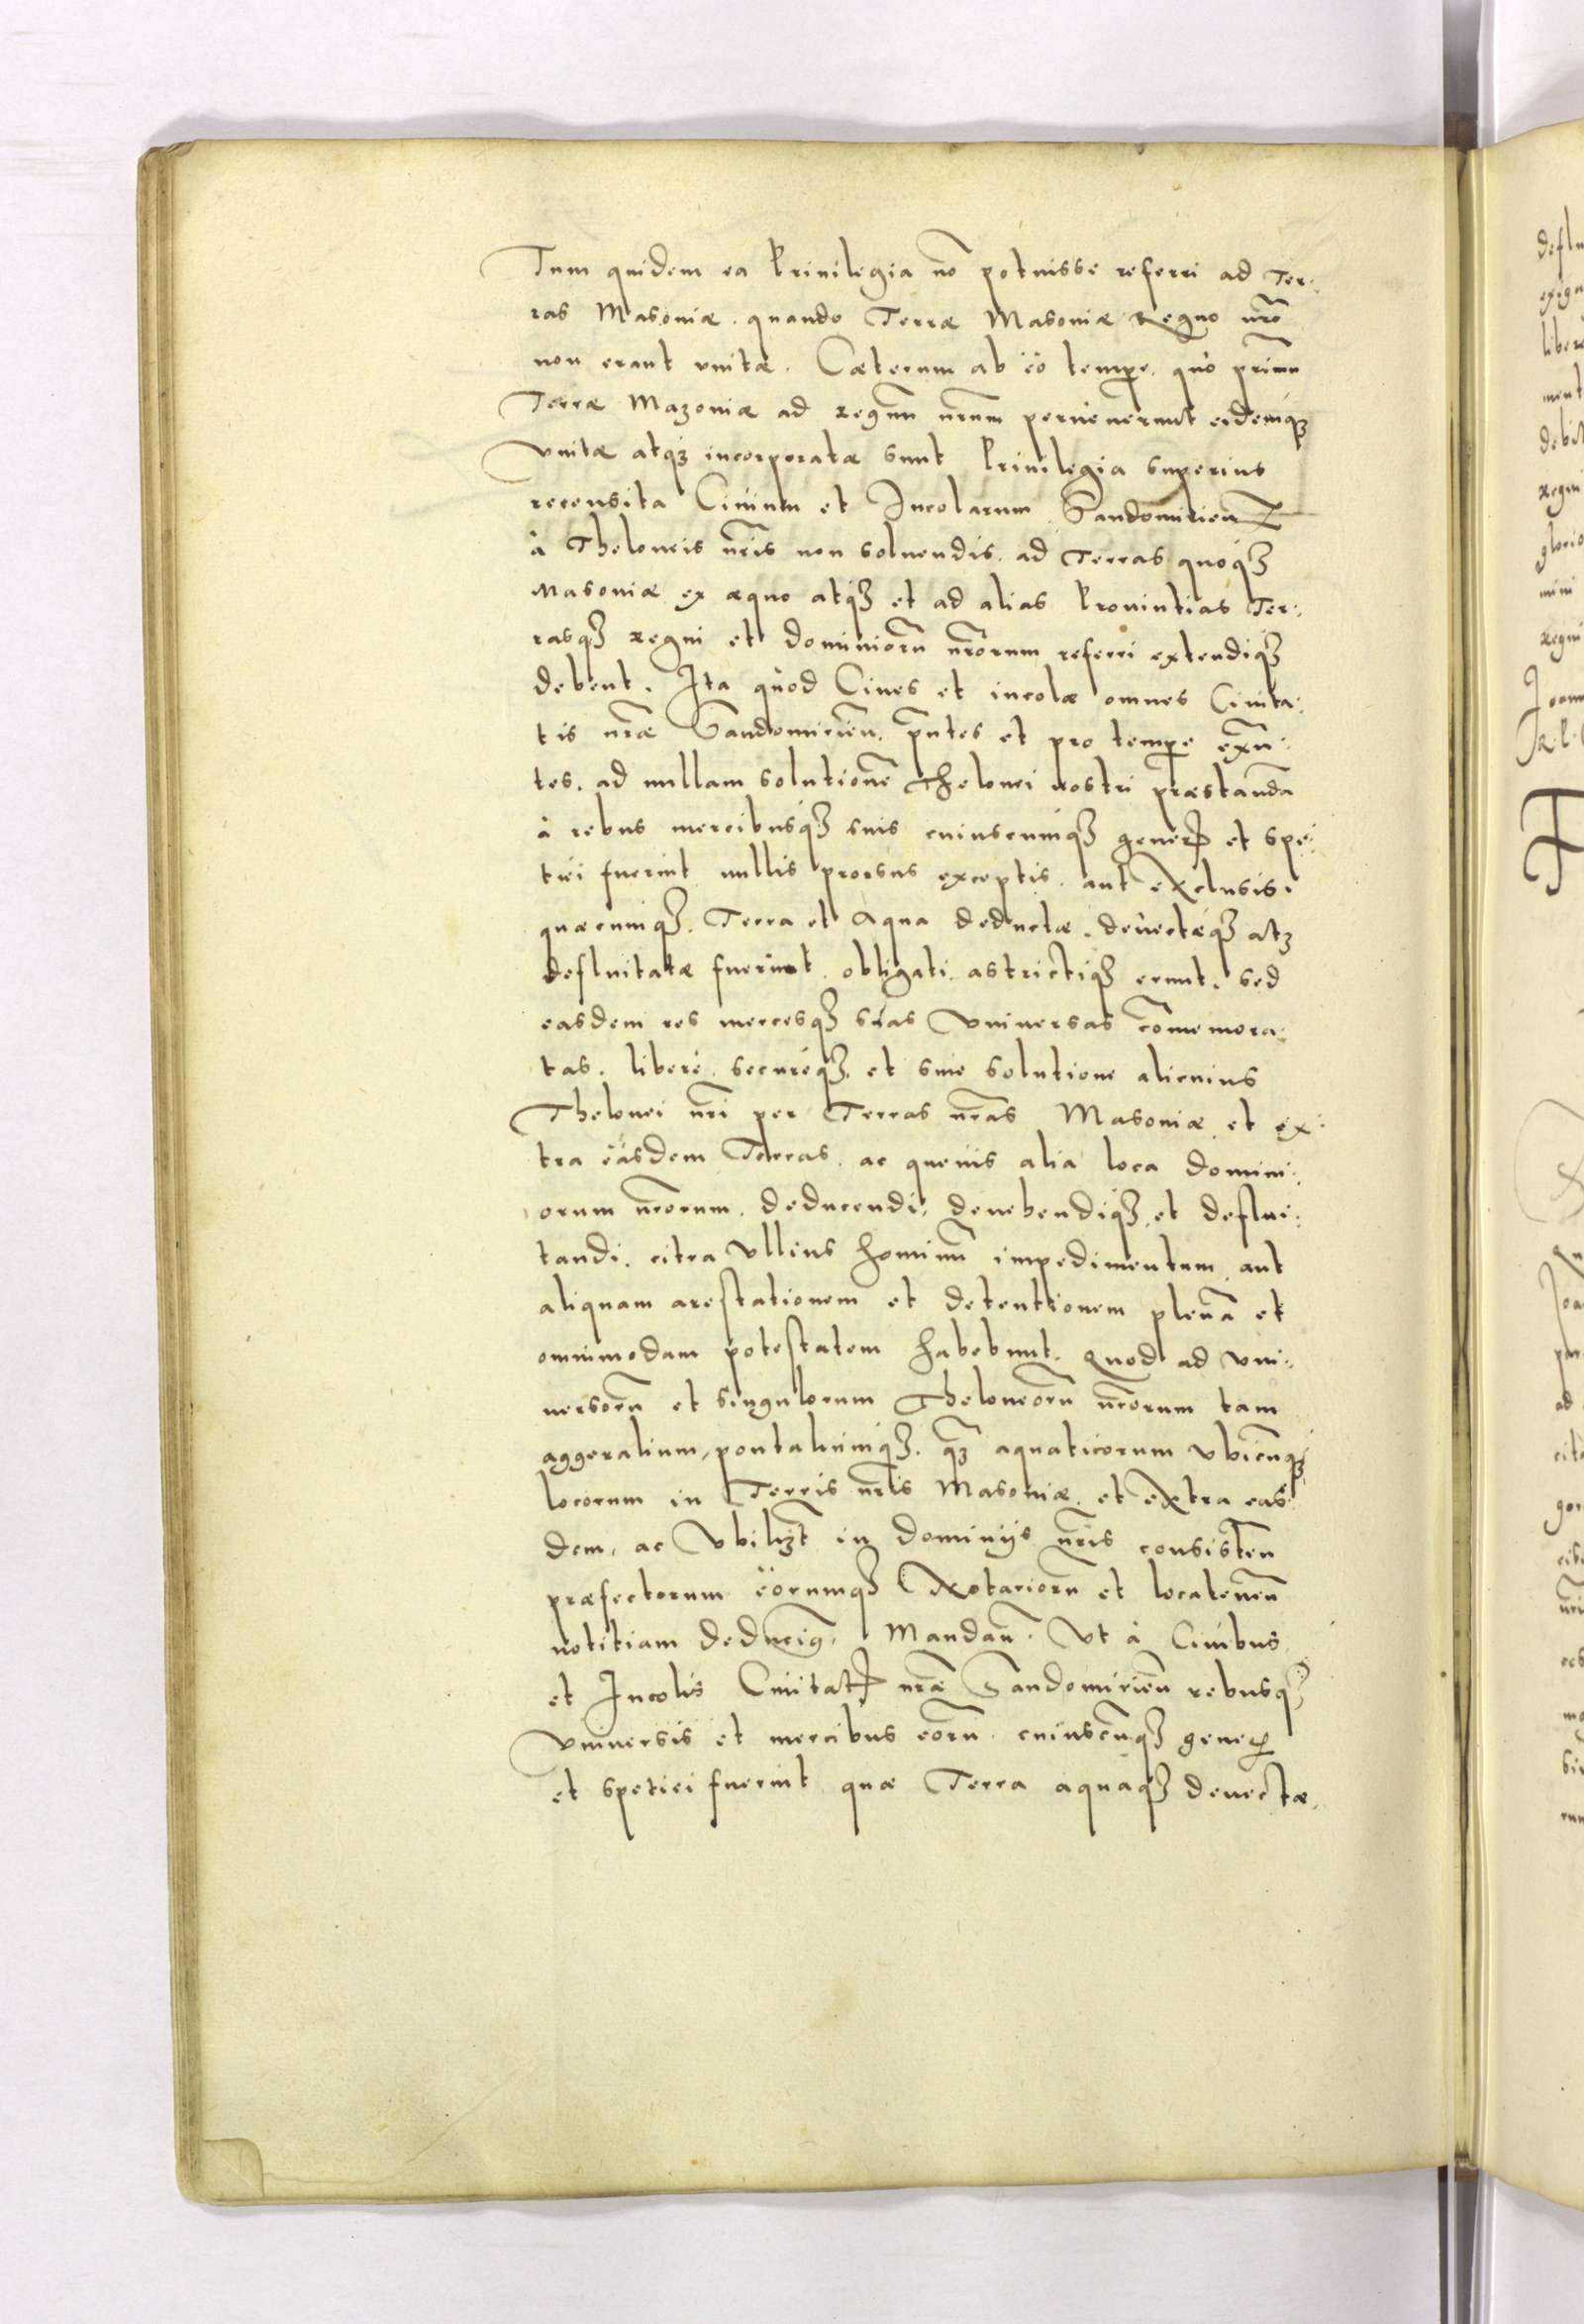 Tum quidem ea Priuilegia nō potuisse referri ad Ter:
ras Masoniæ. quando Terræ Masoniæ Regno nrō
non erant vnitæ. Cæterum ab eo tempe. quo primū
Terræ Mazoniæ ad regnū nrum peruenerunt eidemq3
Vnitæ atq3 incorporatæ sunt Priuilegia superius
recensita Ciuium et Incolarum Sandomirien
à Theloneis nris non soluendis. ad Terras quoq3
Masoniæ ex æquo atq3 et ad alias Prouintias Ter:
rasq3 regni et dominiorū nrorum referri extendiq3
debent. Ita quod Ciues et incolæ omnes Ciuita:
tis nræ Sandomirien. pntes et pro tempe exn:
tes. ad nullam solutionē Thelonei nostri præstandā
à rebus mercibusq3 suis cuiuscunq3 gener et spe:
tiei fuerint nullis prorsus exceptis. aut exclusis.
quæcunq3. Terra et Aqua deductæ. deuectæq3 atq3
defluitatæ fuerint. obligati astrictiq3 erunt. sed
easdem res mercesq3 suas Vniuersas cōmemora:
tas. liberè. securèq3. et sine solutione alicuius
Thelonei nri per Terras nras Masoniæ et ex:
tra easdem Terras. ac queuis alia loca domini:
orum nrorum. deducendi, deuehendiq3 et deflui:
tandi. citra Vllius hominū impedimentum aut
aliquam arestationem et detentionem plenā et
omnimodam potestatem habebunt. Quod ad vni:
uersorū et singulorum Theloneorū nrorum tam
aggeralium, pontaliumq3. q3 aquaticorum vbicunq3
locorum in Terris nris Masoniæ. et extra eas:
dem, ac Vbilizt in dominijs nris consisten
præfectorum eorumq3 Notariorū et locatenen
notitiam deducimus. Mandan. Vt à Ciuibus
et Incolis Ciuitat nræ Sandomirien rebusq3
Vniuersis et mercibus eorū cuiuscunq3 gener
et spetiei fuerint quæ Terra aquaq3 deuectæ.